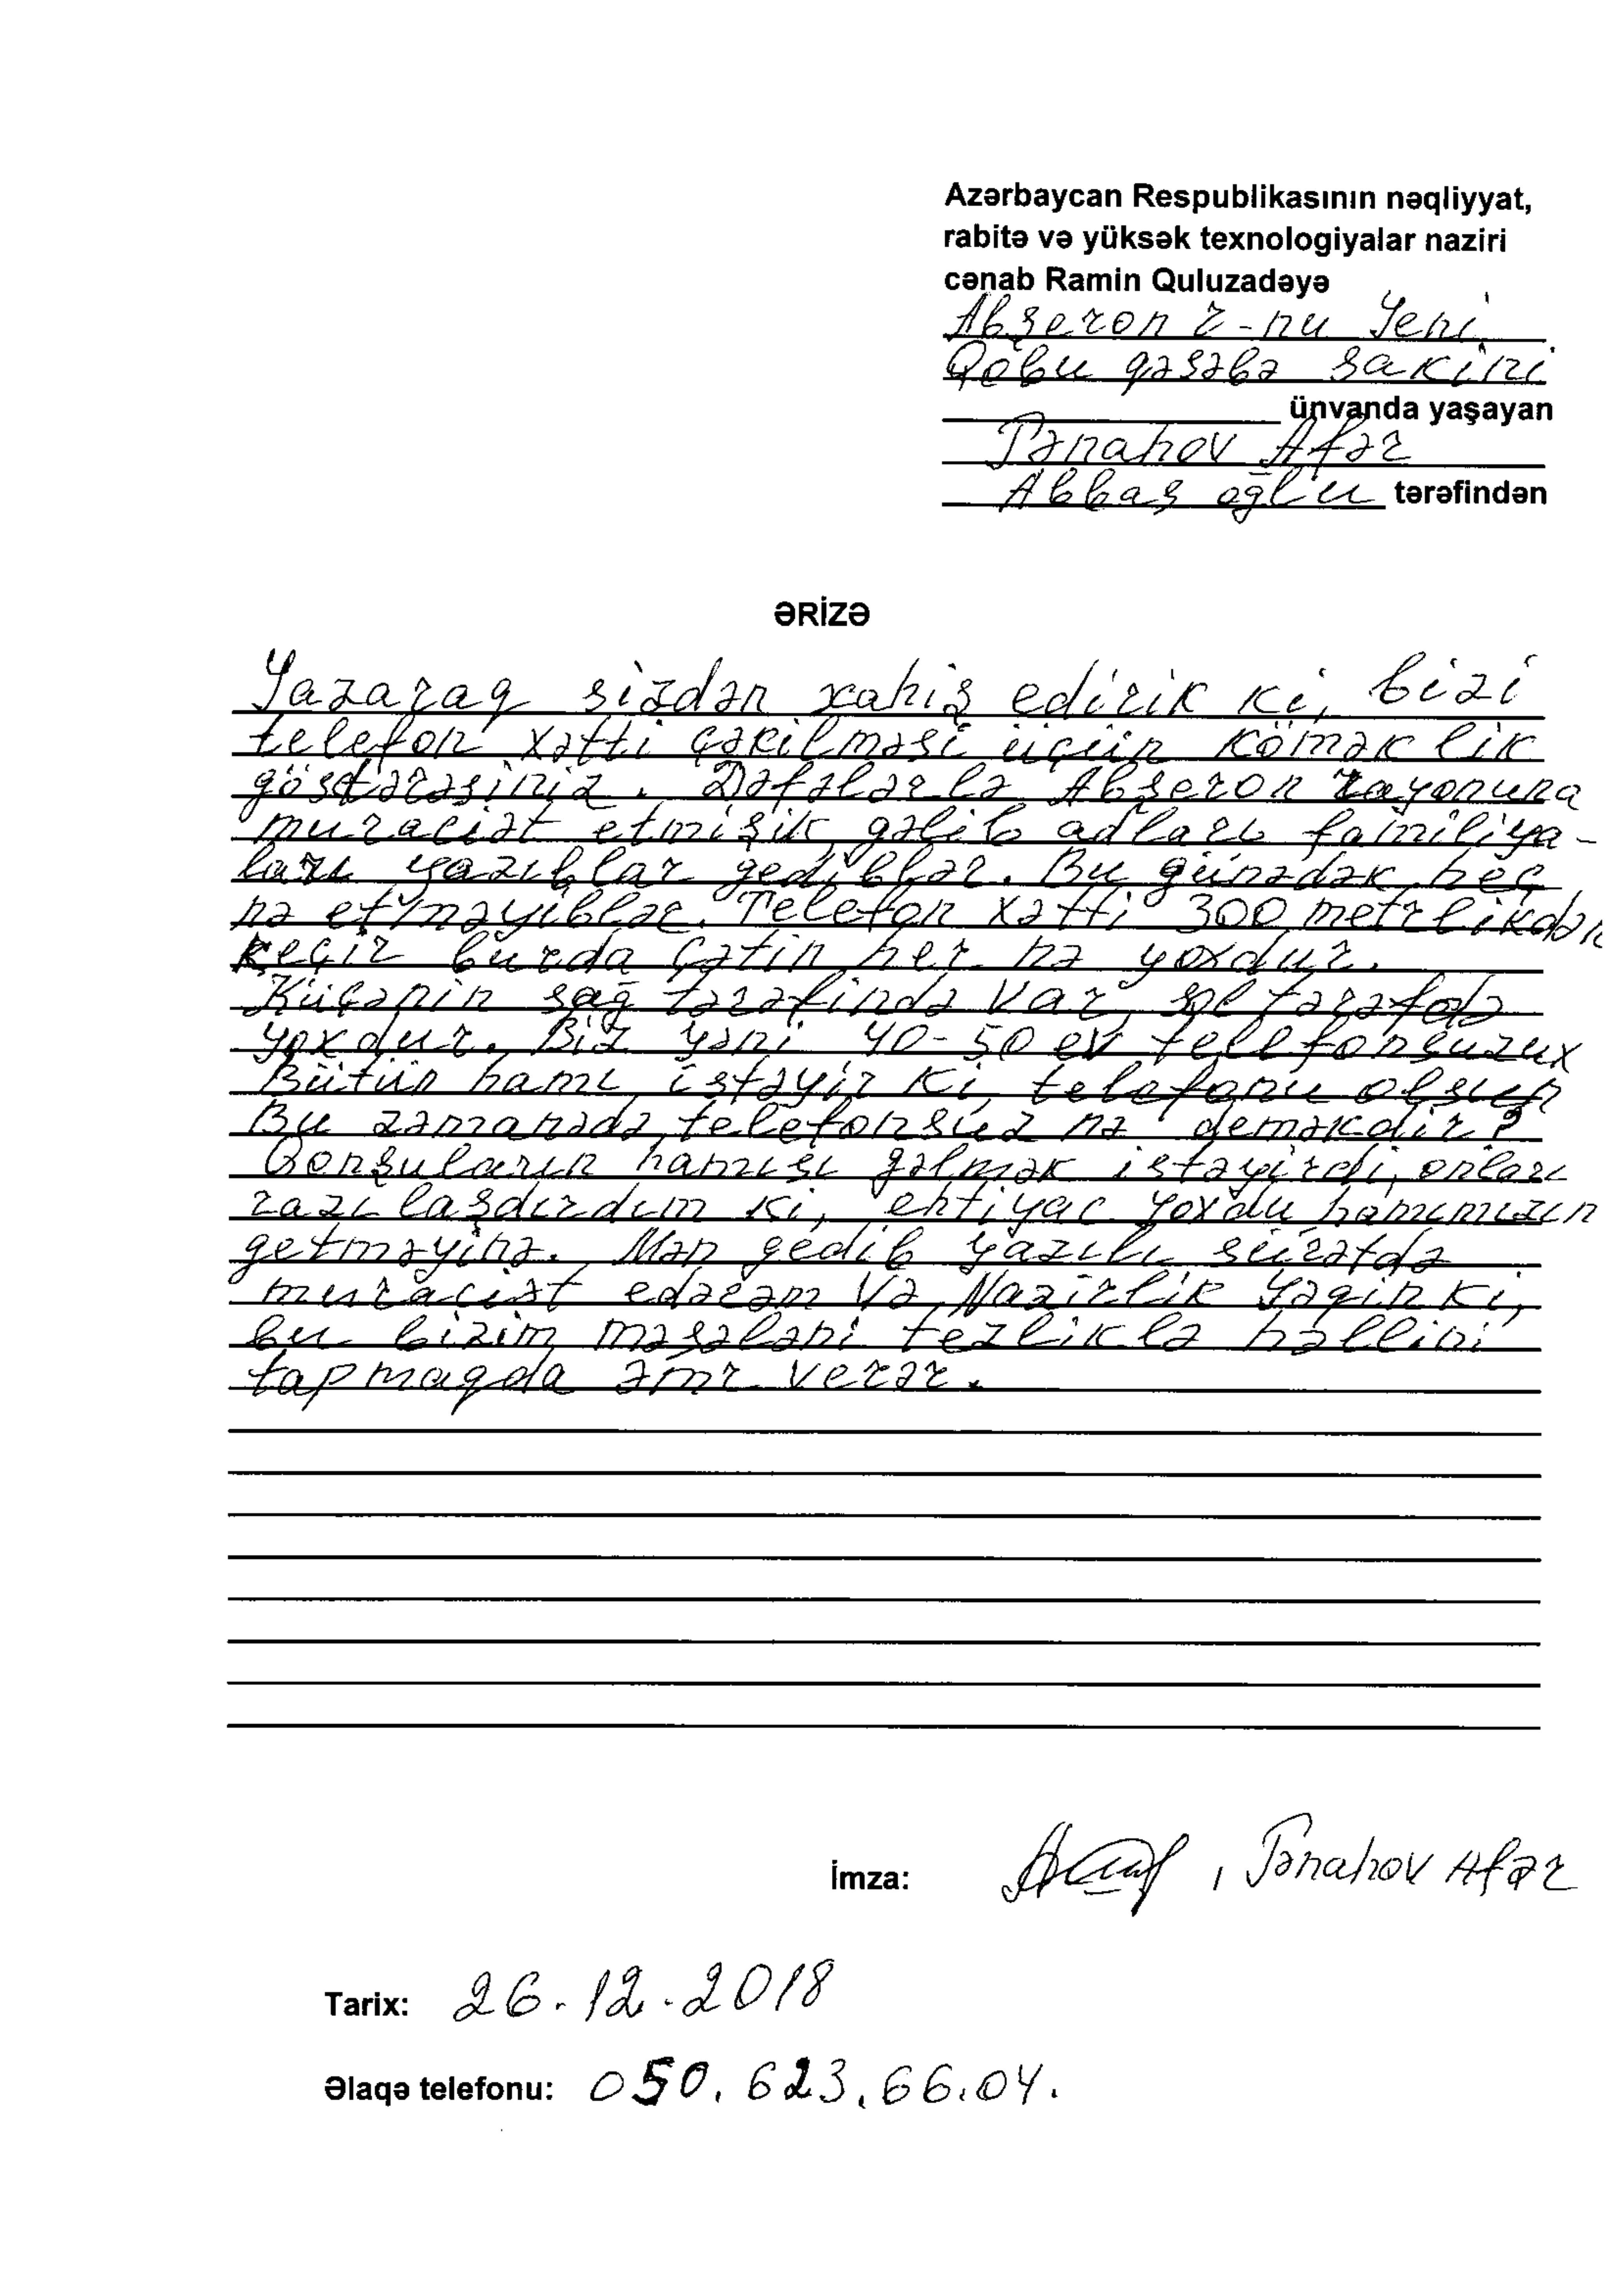 Azərbaycan Respublikasının nəqliyyat,
rabitə və yüksək texnologiyalar naziri
cənab Ramin Quluzadəyə
Abşeron r-nu Yeni
Qobu qəsəbə sakini
ünvanda yaşayan
Pənahov Afər
Abbas oğlu tərəfindən
ƏRİZƏ
Yazaraq sizdən xahiş edirik ki, bizi
telefon xətti çəkilməsi üçün köməklik
göstərəsiniz. Dəfələrlə Abşeron rayonuna
muraciət etmişik, gəlib adları familiya-
ları yazıblar gediblər. Bu günədək heç
nə etməyiblər. Telefon xətti 300 metrlikdən
keçir burda çətin heç nə yoxdur.
Küçənin sağ tərəfində var, sol tərəfdə
yoxdur. Biz yəni 40-50 ev telefonsuzux
Bütün hamı istəyir ki, telefonu olsun
Bu zəmanədə telefonsuz nə deməkdir?
Qonşuların hamısı gəlmək istəyirdi, onları
razılaşdırdım ki, ehtiyac yoxdu hamımızın
getməyinə. Mən gedib yazılı surətdə
muraciət edərəm və Nazirlik yəqin ki,
bu bizim məsələni tezliklə həllini
tapmaqda əmr verər.
İmza: , Pənahov Afər
Tarix: 26.12.2018
Əlaqə telefonu: 050.623.66.04.